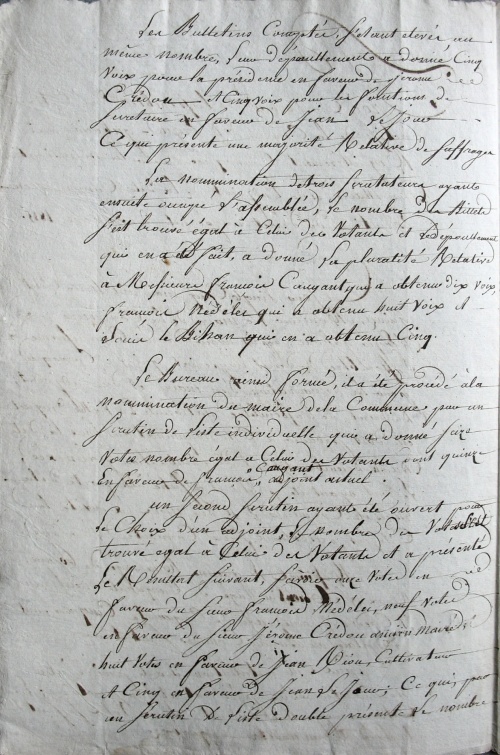 Les Bulletins Comptés, s'etant élevés au
même nombre, Leur dépouillement a donné Cinq
Voix pour la présidence en faveur de Jerome
Crédou et Cinq Voix pour les fonctions de
Secretaire en faveur de Jean Le Jour
Ce qui présente une majorité Relative de Suffrages
La nommination de trois Scrutateurs ayant
ensuite occupé L'assemblée, Le nombre des Billets
s'est trouvé égal à Celui des Votants et Le dépouillement
qui en a été fait, a donné La pluralité Relative
à Messieurs francois Caugant qui a obtenu dix Voix
francois Nédélec qui a obtenu huit Voix et
Louis Le Bihan qui en a obtenu Cinq.
Le Bureau ainsi formé, il a été procédé à la
nommination du maire de la Commune par un
scrutin de Liste individuelle qui a donné Seize
Votes nombre egal à Celui des Votants dont quinze
En faveur de francois Caugant, adjoint actuel.
un Second Scrutin ayant été ouvert pour
Le Choix d'un adjoint, Le nombre des Votes s'est
trouvé egal à Celui des Votants et a présenté
Le Résultat Suivant, onze Votes en
faveur du Sieur francois Nédélec, neuf Votes
en faveur du Sieur Jérôme Crédou ancien maire,
huit Votes en faveur de Jean Riou, Cultivateur
et Cinq en faveur de Jean Le Jour; Ce qui, par
un Scrutin de Liste double présente Le nombre